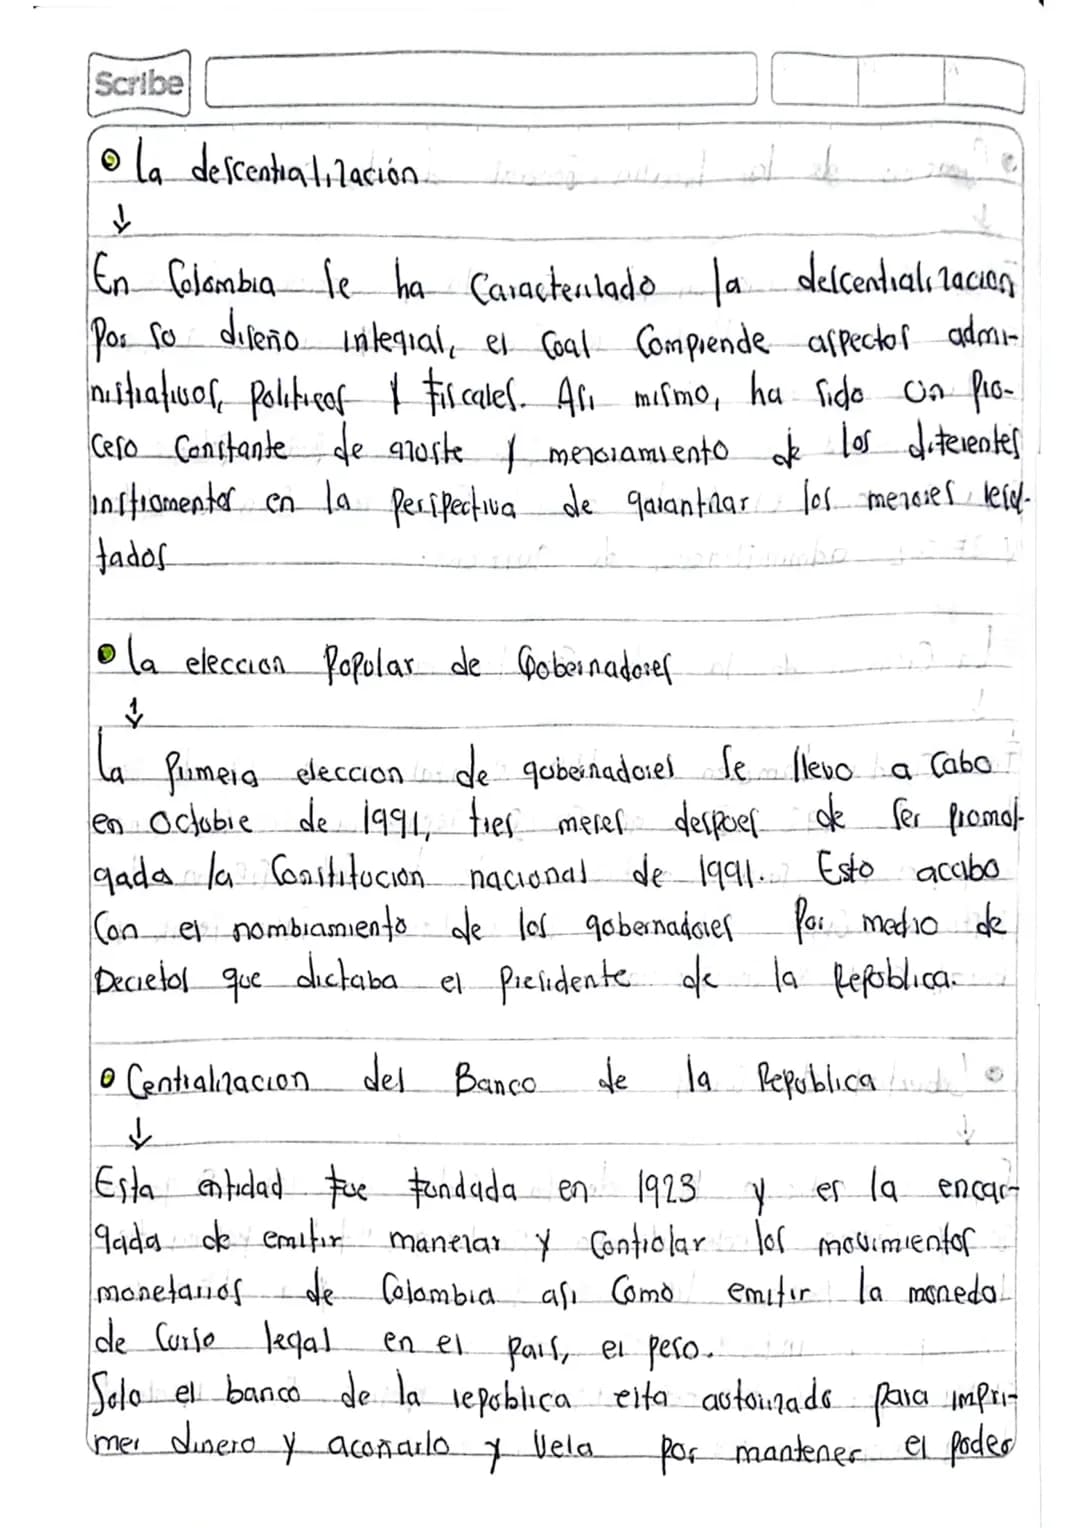 Scribe
La descentralización.
En Colombia se ha Caracterizado la descentralizacion
Por su diseño integral, el Cual Comprende aspectos admi-
nistrativos, Politicos y fiscales. Asi mismo, ha sido un Pro-
ceso Constante de ajuste y mejoramiento de los diferentes
instrumentos en la Perspectiva de garantizar los mejores resul-
tados
La eleccion Popular de Gobernadores
La Primera eleccion de gobernadores se llevo a Cabo
en Octubre de 1991, tres meses despues de ser Promul-
gada la Constitucion nacional de 1991. Esto acabo
Con el nombramiento de los gobernadores Por medio de
Decretos que dictaba el Presidente de la Republica.
Centralizacion del Banco de la Republica
Esta entidad fue fundada en 1923 y es la encar-
gada de emitir manejar y Controlar los movimientos
monetarios de Colombia asi Como emitir la moneda
de Curso legal en el Pais, el peso.
Solo el banco de la republica esta autorizado para impri-
mer dinero y acoñarlo y Vela por mantener el poder